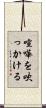 喧嘩を吹
っかける